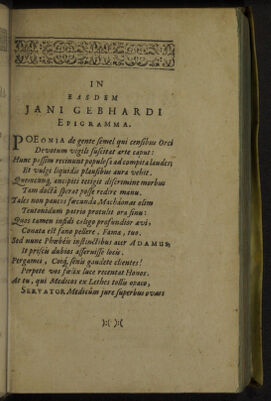 IN
EASDEM
JANI GEBHARDI
EPIGRAMMA.
POEONIA de gente semel qui censibus Orci
Devotum vigili suscitat arte caput:
Hunc passim recinunt populosa ad compita laudes,
Et vulgi liquidis plausibus aura vehit.
Quemcunq, ancipiti tetigit discrimine morbus
Tam doctâ sperat posse redire manu.
Tales non paucos fœcunda Machaonas olim
Teutonidum patrio protulit ora sinu:
Quos tamen infidi caligo profundior ævi,
Conata est famâ pellere. Fama, tuo.
Sed nunc Phœbéis instinctibus acer ADAMUS,
It priscis dubios asseruisse locis.
Pergamei, Coiq, senis gaudete clientes!
Perpete vos fœtâ luce recentat Honos.
At tu, qui Medicos ex Lethes tollis opaco,
SERVATOR Medicûm jure superbus ovas
):( ):(